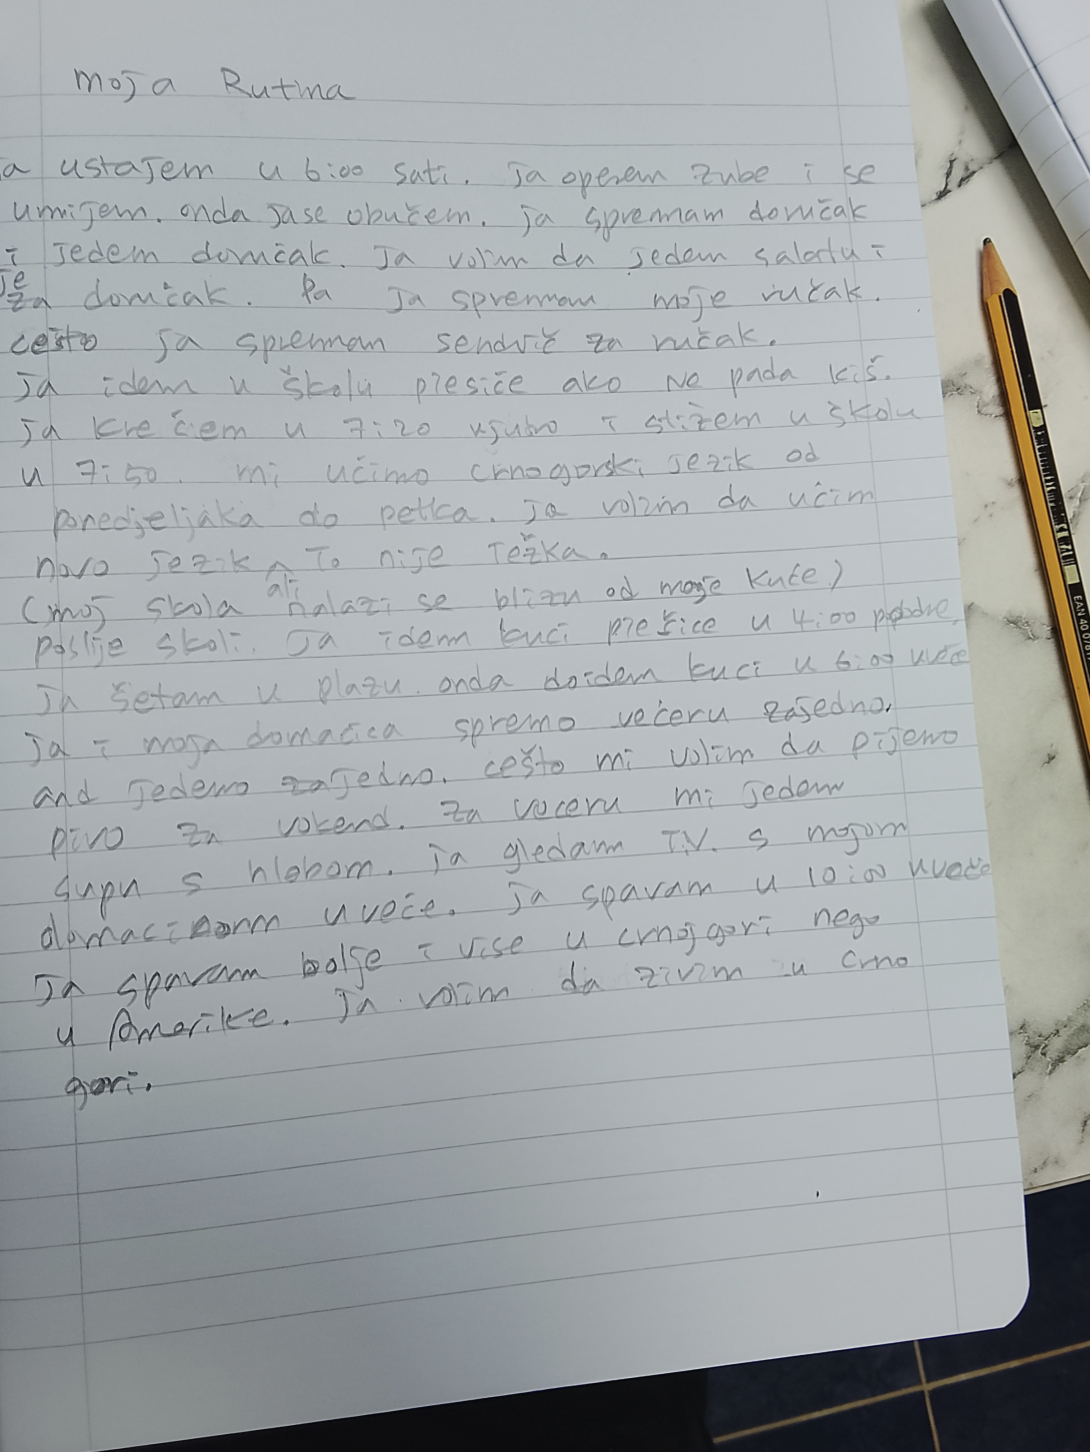 Moja Rutina
a ustajem u 6:00 sati. Ja operem zube i se
umijem. onda Ja se obučem. Ja spremam doručak
i Jedem doručak. Ja volim da jedem salatu i
je
za doručak. Pa Ja spremam moje ručak.
cešto Ja spremam sendvič za ručak.
Ja idem u školu plesiče ako Ne pada kiš.
Ja kre čem u 7:20 ujutro i stižem u školu
u 7:50. mi učimo crnogorski Jezik od
ponedjeljaka do petka. Ja volim da učim
novo Jezik ^ To nije Težka.
ali
(moj skola nalazi se blizu od moje kuće)
poslije skoli. Ja idem kuci
u 4:00
Ja šetam u plazu. onda doidem kuci u 6:00 uveče
Ja i moja domacica spremo večeru zajedno.
and Jedemo zajedno. cešto mi volim da pijemo
pivo za vokend. Za veceru mi jedem
supu s hlebom. Ja gledam T.V. s mojom
uveče. Ja spavam u 10:00 uveče
Ja spavam bolje i vise u crnoj gori nego
u Amerike. Ja volim da zivim u Crno
gori.
EAN 40